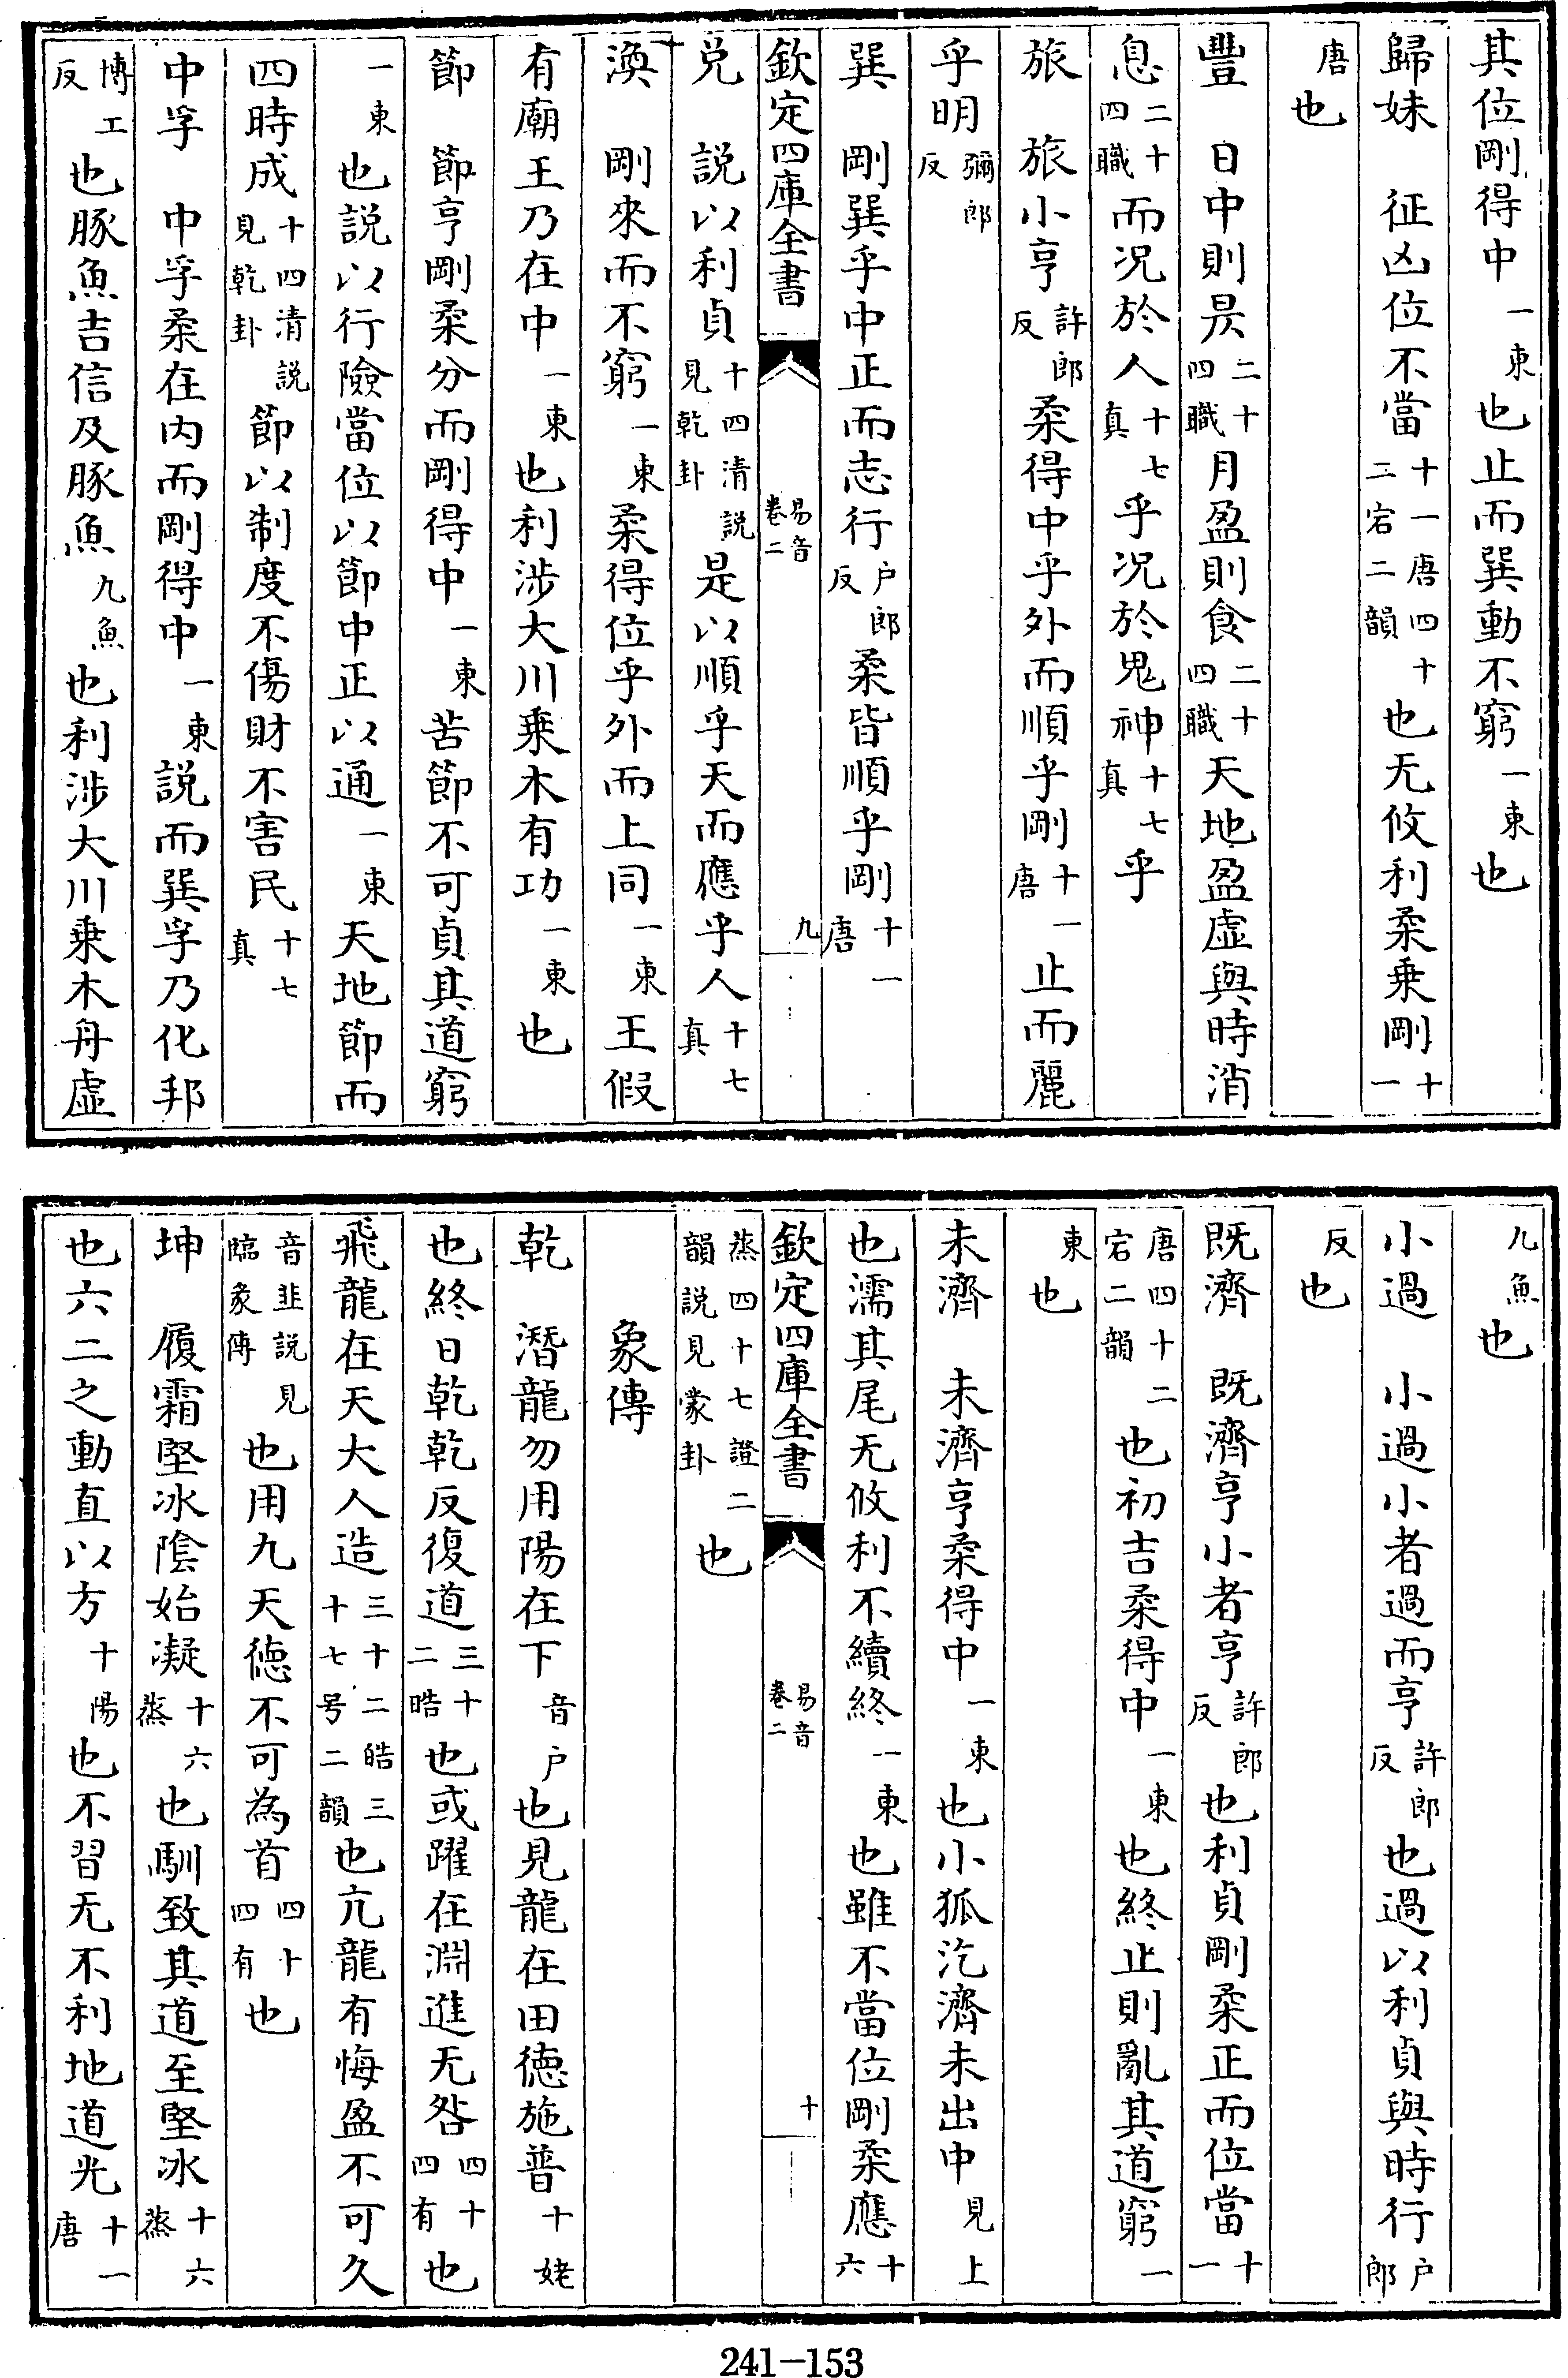 其位剛得中一東也止而巽動不窮一東也
歸妹　征凶位不當十一唐四十二宕二韻也无攸利柔乗剛十一
唐也
豐　日中則昃二十四職月盈則食二十四職天地盈虛與時消
息二十四職而况於人十七真乎况於鬼神十七真乎
旅　旅小亨許郎反柔得中乎外而順乎剛十一唐止而麗
乎明彌郎反
巽　剛巽乎中正而志行户郎反柔皆順乎剛十一唐
欽定四庫全書　易音卷二　九
兌　説以利貞十四清説見乾卦是以順乎天而應乎人十七真
渙　剛來而不窮一東柔得位乎外而上同一東王假
有廟王乃在中一東也利涉大川乗木有功一東也
節　節亨剛柔分而剛得中一東苦節不可貞其道窮
一東也説以行險當位以節中正以通一東天地節而
四時成十四清説見乾卦節以制度不傷財不害民十七真
中孚　中孚柔在内而剛得中一東説而巽孚乃化邦
博工反也豚魚吉信及豚魚九魚也利涉大川乗木舟虛
九魚也
小過　小過小者過而亨許郎反也過以利貞與時行户郎
反也
既濟　既濟亨小者亨許郎反也利貞剛柔正而位當十一
唐四十二宕二韻也初吉柔得中一東也終止則亂其道窮一
東也
未濟　未濟亨柔得中一東也小狐汔濟未出中見上
也濡其尾无攸利不續終一東也雖不當位剛柔應十六
欽定四庫全書　易音卷二　十
蒸四十七證二韻説見蒙卦也
象傳
乾　潛龍勿用陽在下音户也見龍在田德施普十姥
也終日乾乾反復道三十二晧也或躍在淵進无咎四十四有也
飛龍在天大人造三十二皓三十七号二韻也亢龍有悔盈不可久
音韭説見臨象傳也用九天德不可為首四十四有也
坤　履霜堅冰陰始凝十六蒸也馴致其道至堅冰十六蒸
也六二之動直以方十陽也不習无不利地道光十一唐
241—153